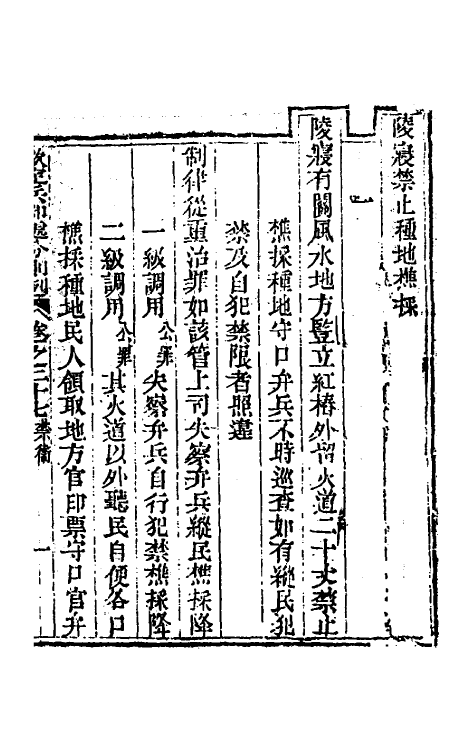 陵寢禁止種地樵採
一
陵寢有關風水地方豎立紅樁外留火道二十丈禁止
樵採種地守口弁兵不時巡查如有縱民犯
禁及自犯禁限者照違
制律從重治罪如該管上司失察弁兵縱民樵採降
一級調用公罪失察弁兵自行犯禁樵採降
二級調用公罪其火道以外聽民自便各口
樵採種地民人領取地方官印票守口官弁
卷之三十七禁衞 一